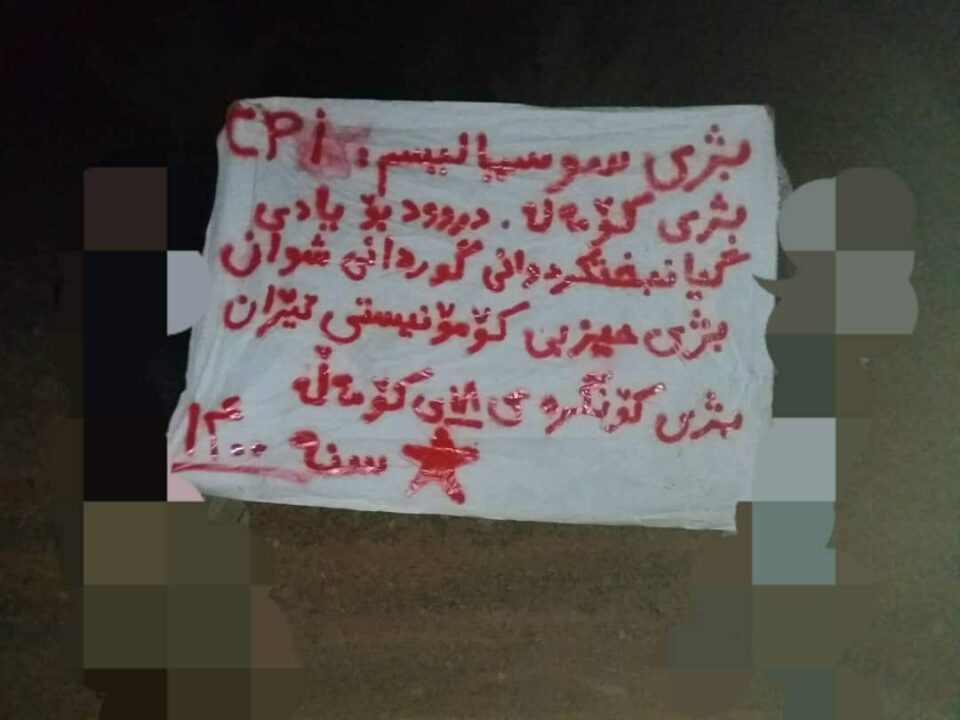 بژی سوسیالیسم. CPi
بژی کۆمەڵە. دروود بۆ یادی
گیانبەختکردوانی گوردانی شوان
بژی حیزبی کۆمۆنیستی ئێران
بژی کۆنگرەی ١٨ی کۆمەڵە
سنە ١٤٠٠